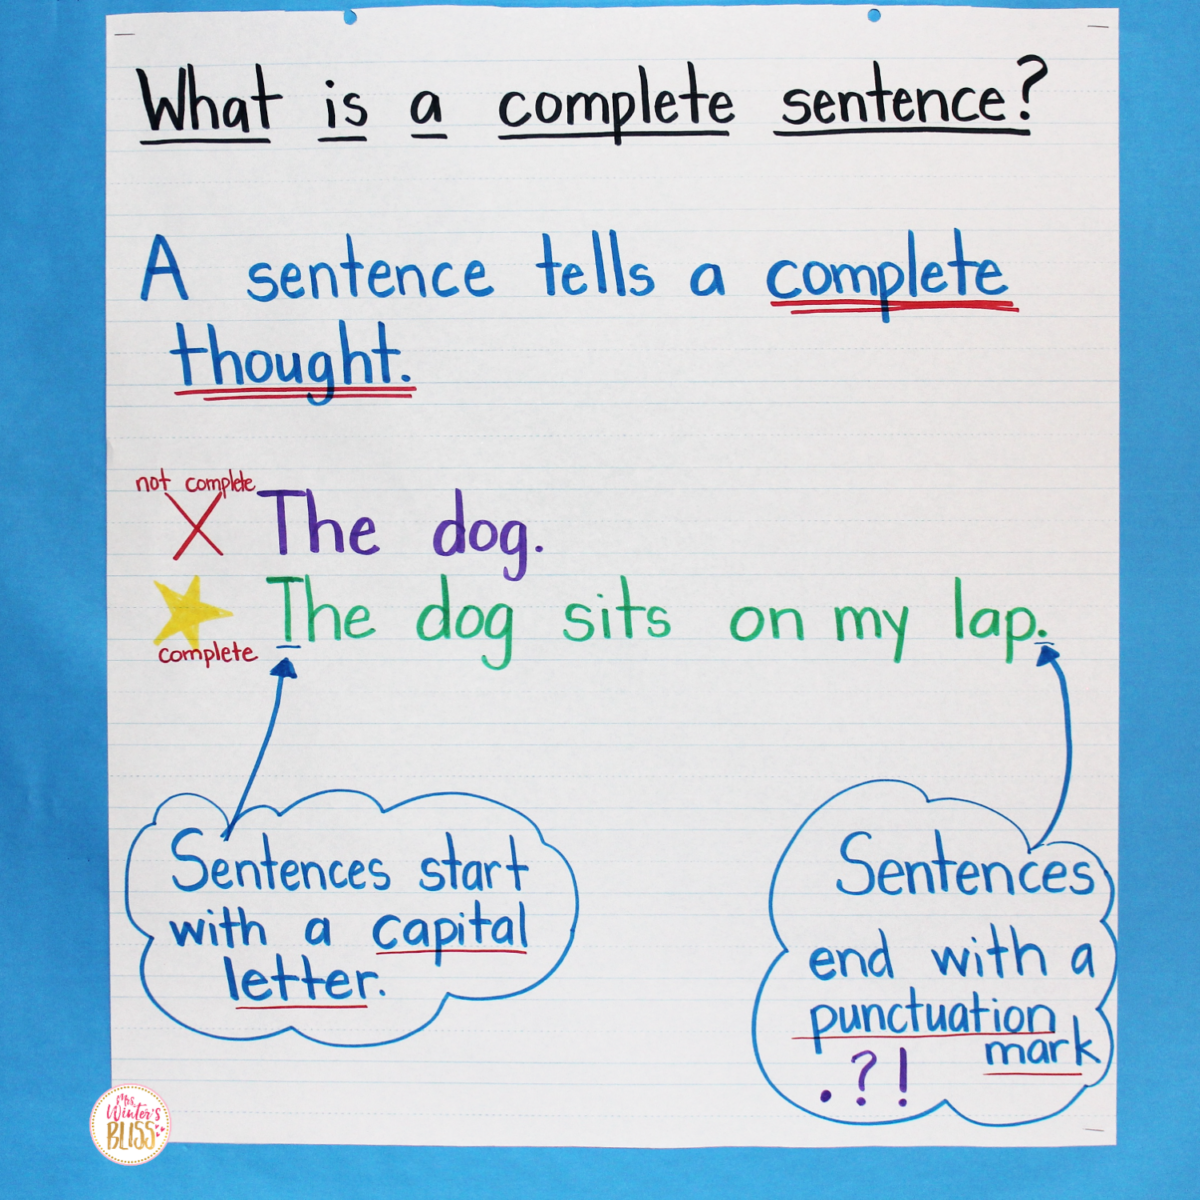 What is a complete sentence?
A sentence tells a complete
thought.
not complete
The dog.
The dog sits on my lap.
complete
Sentences start
with a capital
letter.
Sentences
end with a
punctuation
mark
. ? !
Mrs.
Winter's
BLISS